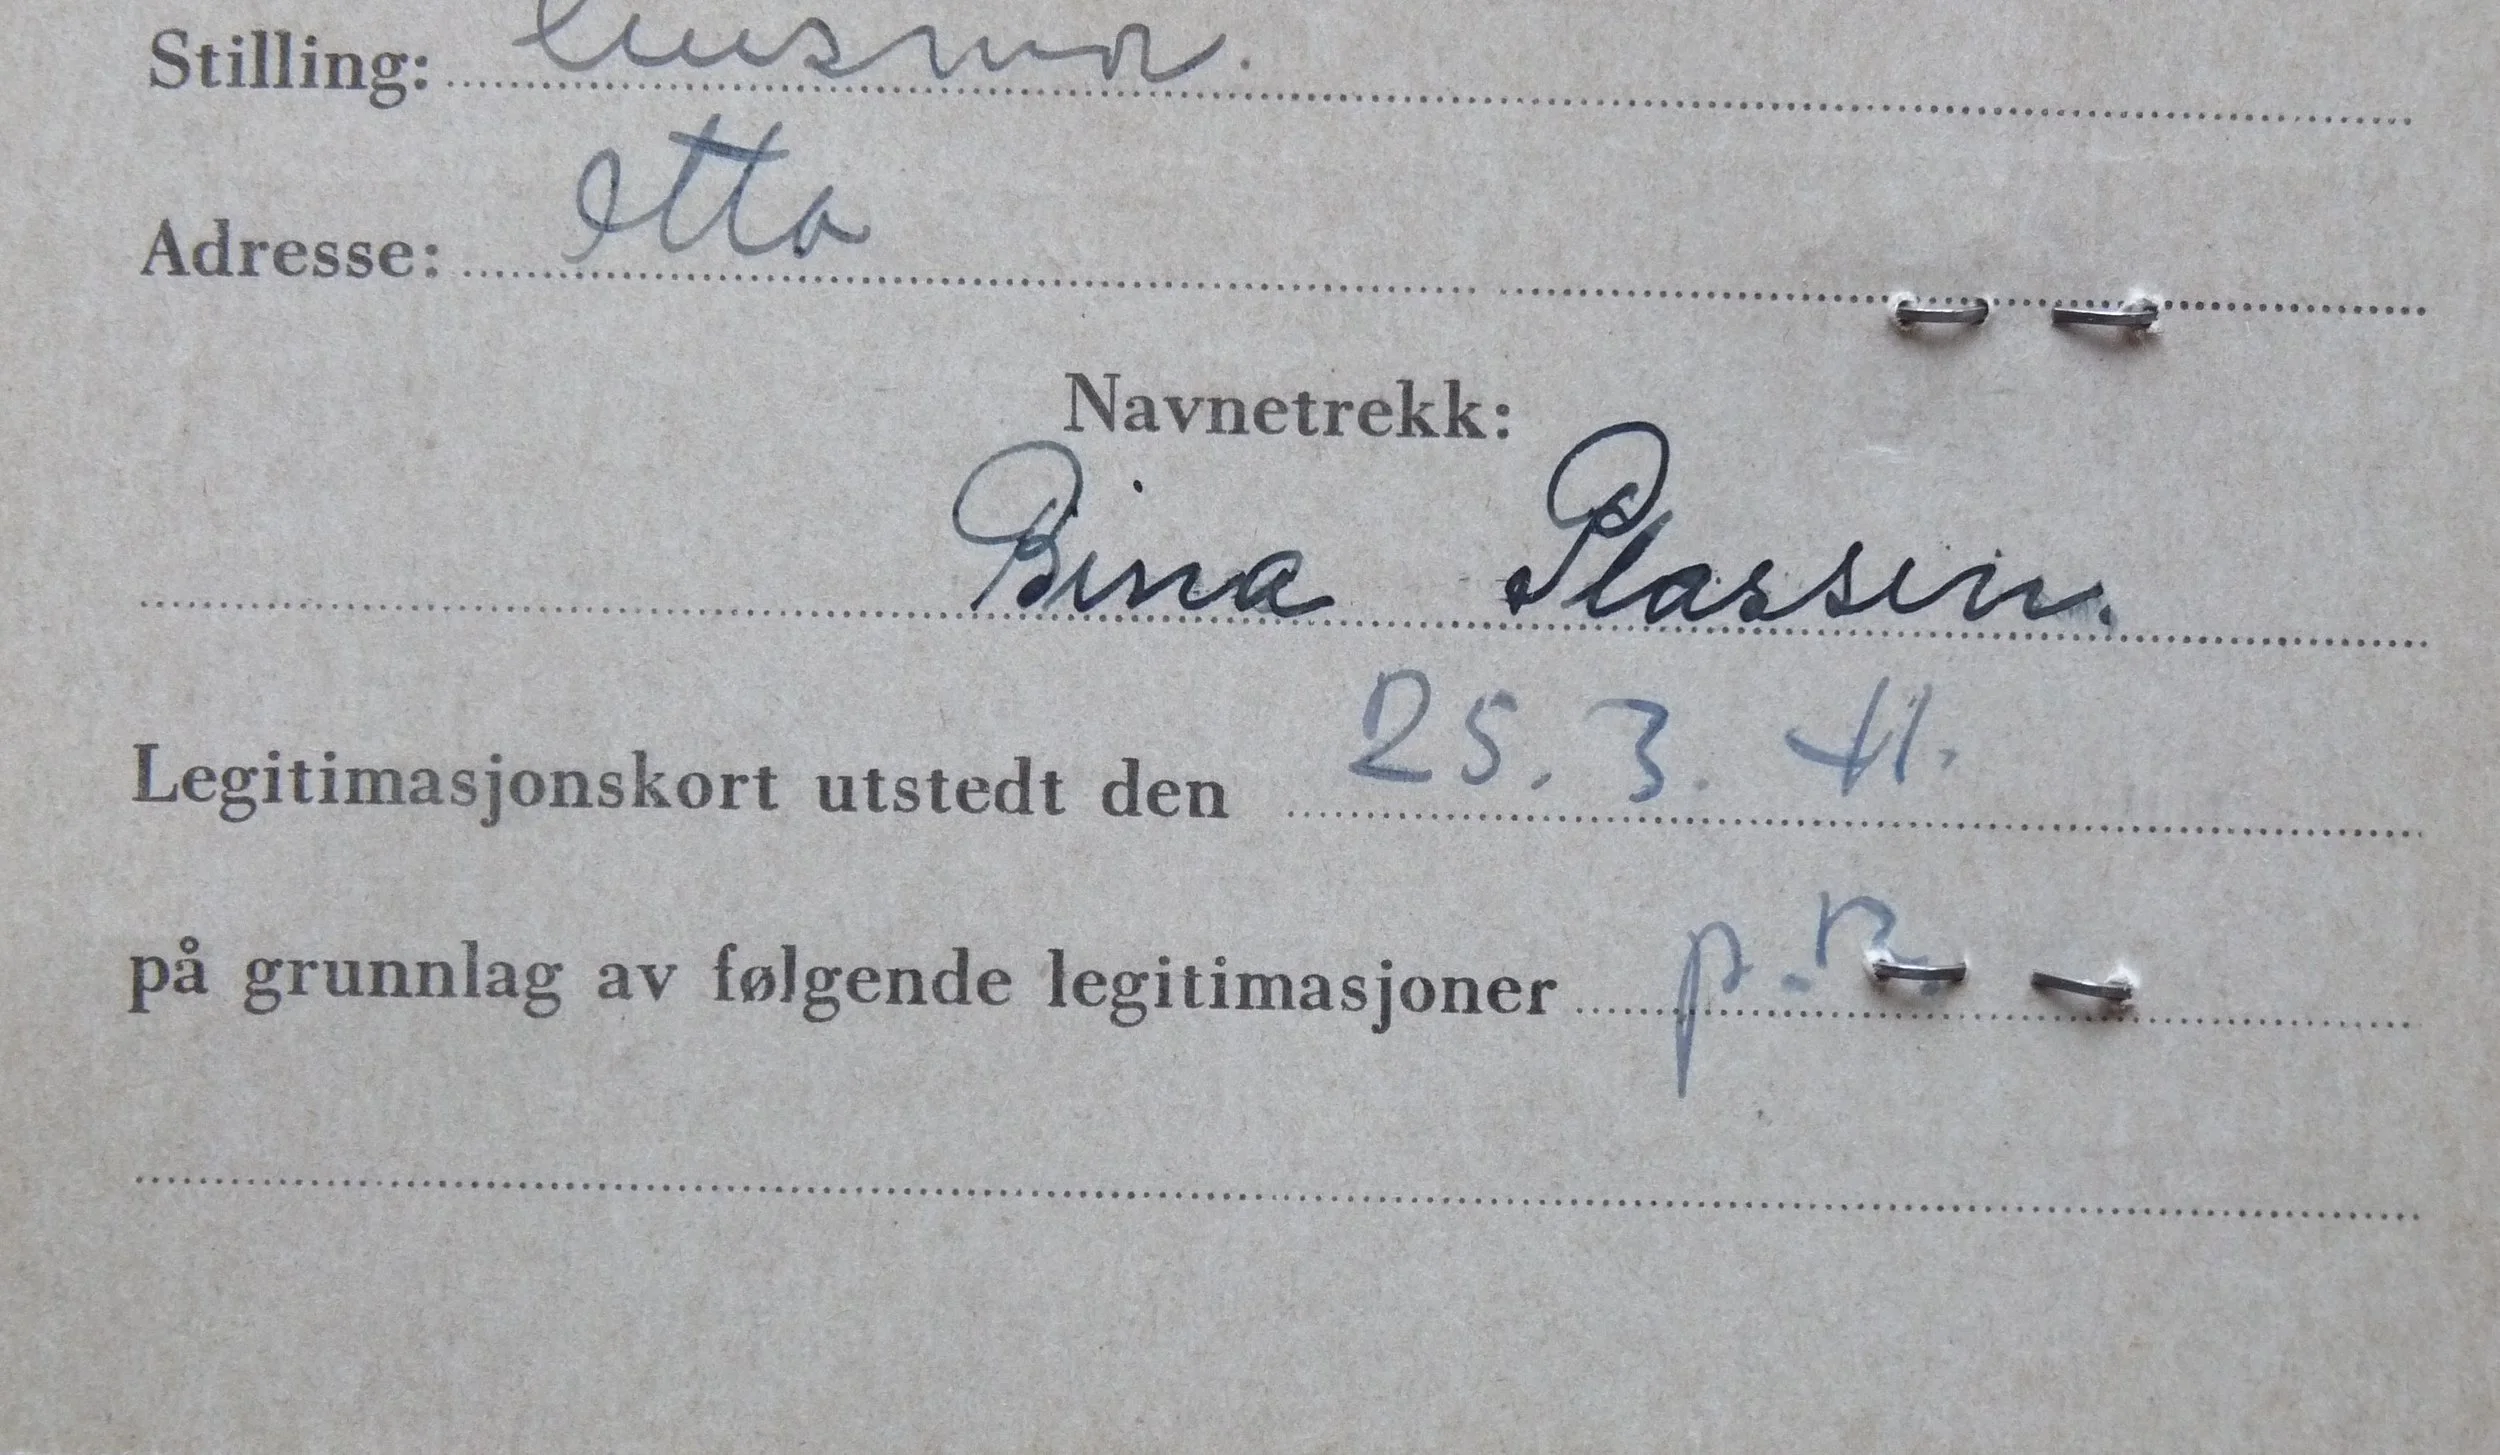 Stilling: husmor.
Adresse: Otta
Navnetrekk:
Bina Plassen.
Legitimasjonskort utstedt den 25. 3. 41.
på grunnlag av følgende legitimasjoner p.B.